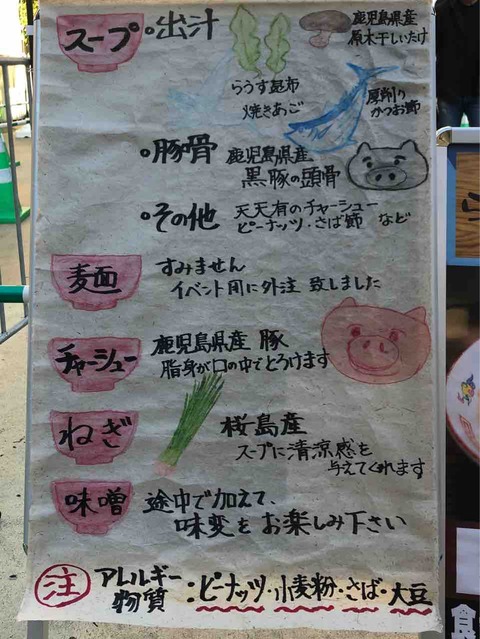 スープ
・出汁
鹿児島県産
原木干しいたけ
らうす昆布
焼きあご
厚削り
かつお節
・豚骨
鹿児島県産
黒豚の頭骨
・その他
天天有のチャーシュー
ピーナッツ・さば節 など
麺
すみません
イベント用に外注 致しました
チャーシュー
鹿児島県産 豚
脂身が口の中でとろけます
ねぎ
桜島産
スープに清涼感を
与えてくれます
味噌
途中で加えて、
味変をお楽しみ下さい
注
アレルギー
物質
:ピーナッツ・小麦粉・さば・大豆
食